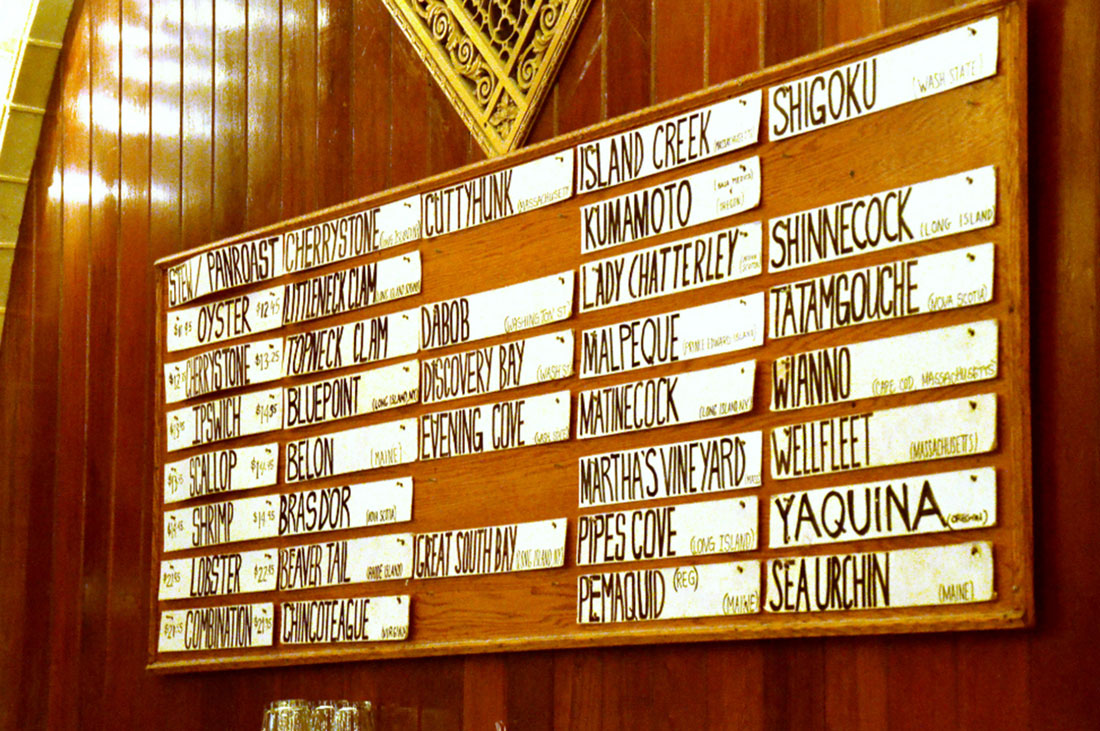 STEW/PANROAST
$11.95 OYSTER $12.45
CHERRYSTONE $13.25
IPSWICH $14.95
$13.95 SCALLOP $14.95
$14.45 SHRIMP $14.95
$21.95 LOBSTER $22.45
COMBINATION
CHERRYSTONE (LONG ISLAND)
LITTLENECK CLAM
TOPNECK CLAM
BLUEPOINT (LONG ISLAND, NY)
BELON (MAINE)
BRASDOR (NOVA SCOTIA)
BEAVER TAIL (RHODE ISLAND)
CHINCOTEAGUE (VIRGINIA)
CUTTYHUNK
DABOB
DISCOVERY BAY
EVENING COVE
GREAT SOUTH BAY (LONG ISLAND, NY)
ISLAND CREEK (MASSACHUSETTS)
KUMAMOTO (OREGON)
LADY CHATTERLEY
MALPEQUE (PRINCE EDWARD ISLAND)
MATINECOCK (LONG ISLAND, NY)
MARTHA'S VINEYARD (MASS
PIPES COVE (LONG ISLAND)
PEMAQUID (REG) (MAINE)
SHIGOKU (WASH STATE)
SHINNECOCK (LONG ISLAND
TATAMGOUCHE (NOVA SCOTIA)
WIANNO (CAPE COD, MASSACHUSETTS
WELLFLEET (MASSACHUSETTS)
YAQUINA (OREGON)
SEA URCHIN (MAINE)